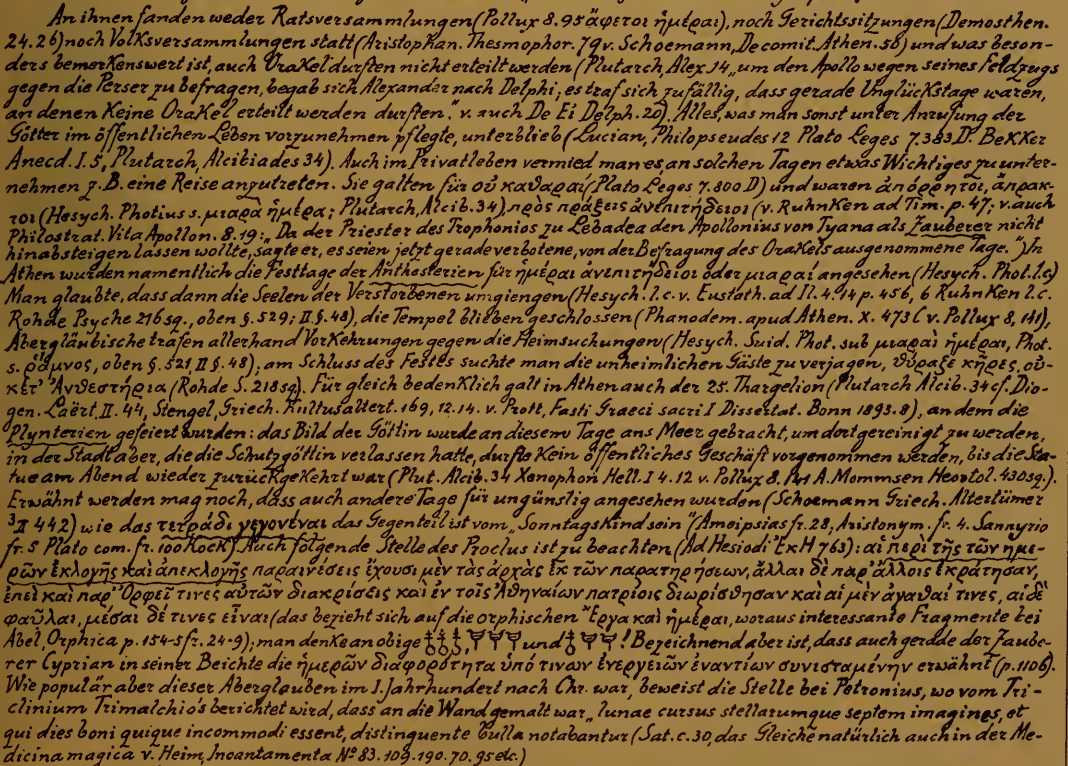 An ihnen fanden weder Ratsversammlungen (Pollux 8.95 ἄφετοι ἡμέραι), noch Gerichtssitzungen (Demosthen.
24.26) noch Volksversammlungen statt (Aristophan. Thesmophor. 79 v. Schoemann, De comit. Athen. 50) und was beson-
ders bemerkenswert ist, auch Orakel durften nicht erteilt werden (Plutarch, Alex 14 „um den Apollo wegen seines Feldzugs
gegen die Perser zu befragen, begab sich Alexander nach Delphi; es traf sich zufällig, dass gerade Unglückstage waren,
an denen keine Orakel erteilt werden durften." v. auch De Ei Delph. 20). Alles, was man sonst unter Anrufung der
Götter im öffentlichen Leben vorzunehmen pflegte, unterblieb (Lucian, Philopseudes 12 Plato Leges 7.383 D. Bekker
Anecd. I. 5, Plutarch, Alcibiades 34). Auch im Privatleben vermied man es, an solchen Tagen etwas Wichtiges zu unter-
nehmen z. B. eine Reise anzutreten. Sie galten für οὐ καθαραί (Plato Leges 7.800 D) und waren ἀπόρρητοι, ἄπρακ-
τοι (Hesych. Photius s. μιαρὰ ἡμέρα; Plutarch, Alcib. 34), πρὸς πράξεις ἀνεπιτήδειοι (v. Ruhnken ad Tim. p. 47; v. auch
Philostrat. Vita Apollon. 8.19: „Da der Priester des Trophonios zu Lebadea den Apollonius von Tyana als Zauberer nicht
hinabsteigen lassen wollte, sagte er, es seien jetzt gerade verbotene, von der Befragung des Orakels ausgenommene Tage.") In
Athen wurden namentlich die Festtage der Anthesterien für ἡμέραι ἀνεπιτήδειοι oder μιαραί angesehen (Hesych. Phot. l.c.)
Man glaubte, dass dann die Seelen der Verstorbenen umgiengen (Hesych. l.c. v. Eustath. ad Il. 4.14 p. 456, 6 Ruhnken l.c.
Rohde Psyche 216 sg., oben §. 529; II §. 48), die Tempel blieben geschlossen (Phanodem. apud Athen. X. 473 C v. Pollux 8, 141),
Abergläubische trafen allerhand Vorkehrungen gegen die Heimsuchungen (Hesych. Suid. Phot. sub μιαραὶ ἡμέραι, Phot.
s. ῥάμνος, oben §. 521, II §. 48); am Schluss des Festes suchte man die unheimlichen Gäste zu verjagen, θύραζε κῆρες, οὐ-
κέτ' Ἀνθεστήρια (Rohde S. 218 sg). Für gleich bedenklich galt in Athen auch der 25. Thargelion (Plutarch Alcib. 34 cf. Dio-
gen. Laërt. II. 44, Stengel, Griech. Kultusaltert. 169, 12.14. v. Prott, Fasti Graeci sacri I Dissertat. Bonn 1893. 8), an dem die
Plynterien gefeiert wurden: das Bild der Göttin wurde an diesem Tage ans Meer gebracht, um dort gereinigt zu werden,
in der Stadt aber, die die Schutzgöttin verlassen hatte, durfte kein öffentliches Geschäft vorgenommen werden, bis die Sta-
tue am Abend wieder zurückgekehrt war (Plut. Alcib. 34 Xenophon Hell. I 4. 12 v. Pollux 8. 141 A. Mommsen Heortol. 430 sg.).
Erwähnt werden mag noch, dass auch andere Tage für ungünstig angesehen wurden (Schoemann Griech. Altertümer
³II 442) wie das τετράδι γεγονέναι das Gegenteil ist vom „Sonntagskind sein" (Ameipsias fr. 28, Aristonym. fr. 4. Sannyrio
fr. 5 Plato com. fr. 100 Kock). Auch folgende Stelle des Proclus ist zu beachten (Ad Hesiodi ἜκΗ 763): αἱ περὶ τῆς τῶν ἡμε-
ρῶν ἐκλογῆς καὶ ἀπεκλογῆς παραινέσεις ἔχουσι μὲν τὰς ἀρχὰς ἐκ τῶν παρατηρήσεων, ἄλλαι δὲ παρ' ἄλλοις ἐκράτησαν,
ἐπεὶ καὶ παρ' Ὀρφεῖ τινες αὐτῶν διακρίσεις καὶ ἐν τοῖς Ἀθηναίων πατρίοις διωρίσθησαν καὶ αἱ μὲν ἀγαθαί τινες, αἱ δὲ
φαῦλαι, μέσαι δέ τινες εἶναι (das bezieht sich auf die orphischen Ἔργα καὶ ἡμέραι, woraus interessante Fragmente bei
Abel, Orphica p. 154-5 fr. 24-9); man denke an obige und ! Bezeichnend aber ist, dass auch gerade der Zaube-
rer Cyprian in seiner Beichte die ἡμερῶν διαφορότητα ὑπό τινων ἐνεργειῶν ἐναντίων συνισταμένην erwähnt (p. 1106).
Wie populär aber dieser Aberglauben im 1. Jahrhundert nach Chr. war, beweist die Stelle bei Petronius, wo vom Tri-
clinium Trimalchio's berichtet wird, dass an die Wand gemalt war „lunae cursus stellarumque septem imagines, et
qui dies boni quique incommodi essent, distinguente bulla notabantur (Sat. c. 30, das Gleiche natürlich auch in der Me-
dicina magica v. Heim, Incantamenta № 83. 109. 190. 70. 95 etc.)